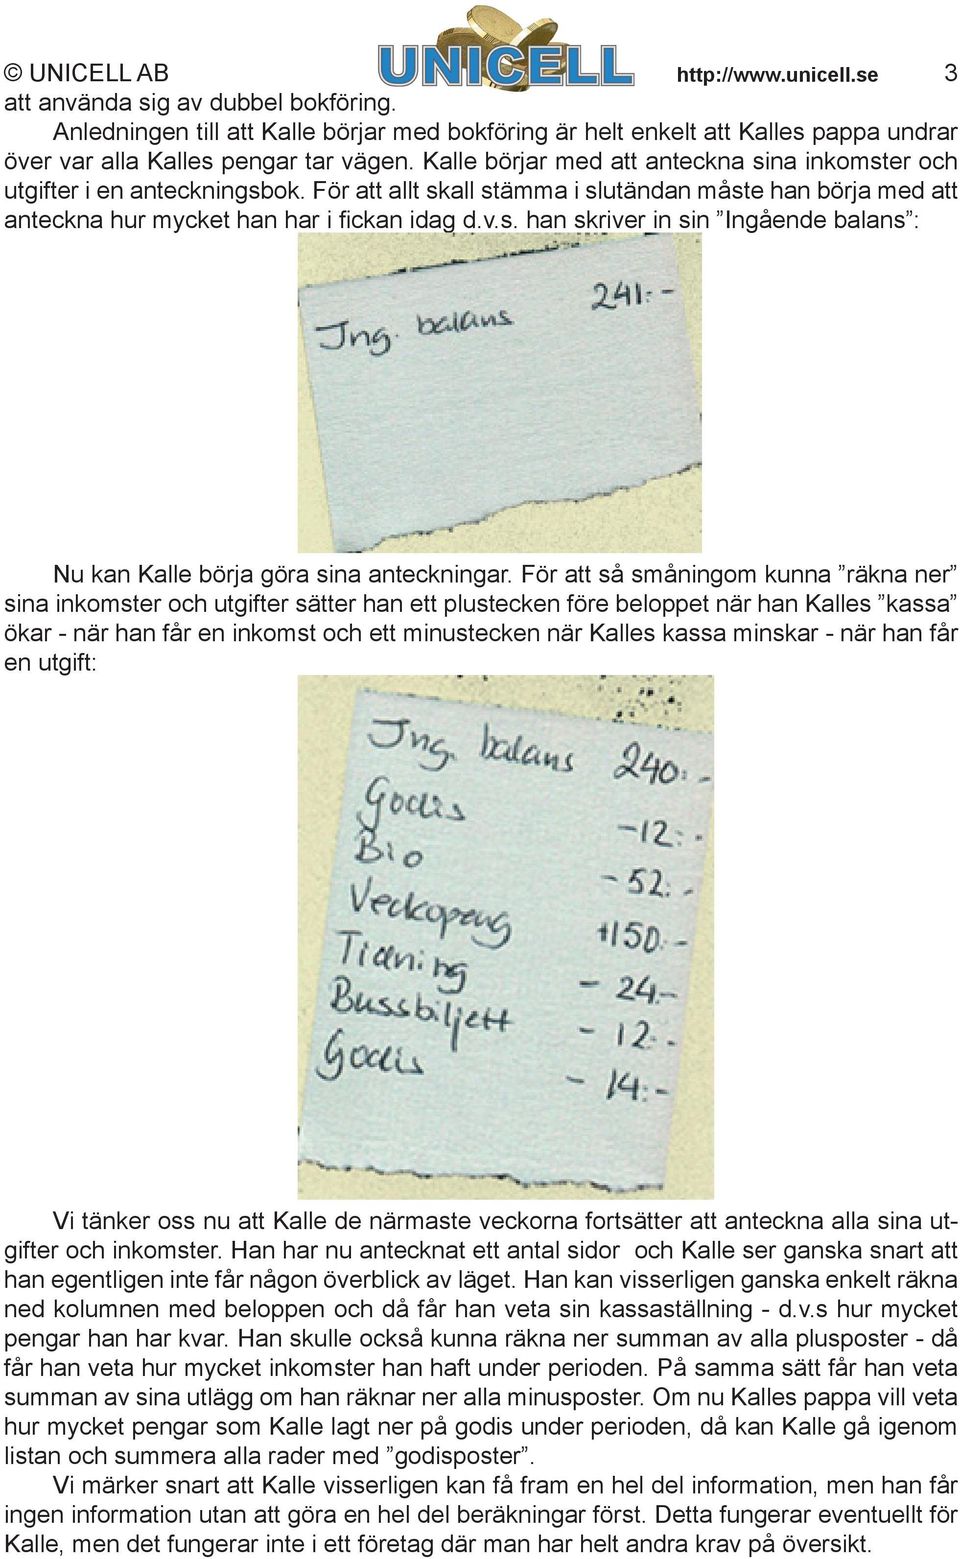 © UNICELL AB UNICELL http://www.unicell.se 3
att använda sig av dubbel bokföring.
Anledningen till att Kalle börjar med bokföring är helt enkelt att Kalles pappa undrar
över var alla Kalles pengar tar vägen. Kalle börjar med att anteckna sina inkomster och
utgifter i en anteckningsbok. För att allt skall stämma i slutändan måste han börja med att
anteckna hur mycket han har i fickan idag d.v.s. han skriver in sin ”Ingående balans”:
Ing. balans 241:-
Nu kan Kalle börja göra sina anteckningar. För att så småningom kunna ”räkna ner”
sina inkomster och utgifter sätter han ett plustecken före beloppet när han Kalles ”kassa”
ökar - när han får en inkomst och ett minustecken när Kalles kassa minskar - när han får
en utgift:
Ing. balans 240:-
Godis -12:-
Bio -52:-
Veckopeng +150:-
Tidning - 24:-
Bussbiljett - 12:-
Godis - 14:-
Vi tänker oss nu att Kalle de närmaste veckorna fortsätter att anteckna alla sina ut-
gifter och inkomster. Han har nu antecknat ett antal sidor och Kalle ser ganska snart att
han egentligen inte får någon överblick av läget. Han kan visserligen ganska enkelt räkna
ned kolumnen med beloppen och då får han veta sin kassaställning - d.v.s hur mycket
pengar han har kvar. Han skulle också kunna räkna ner summan av alla plusposter - då
får han veta hur mycket inkomster han haft under perioden. På samma sätt får han veta
summan av sina utlägg om han räknar ner alla minusposter. Om nu Kalles pappa vill veta
hur mycket pengar som Kalle lagt ner på godis under perioden, då kan Kalle gå igenom
listan och summera alla rader med ”godisposter”.
Vi märker snart att Kalle visserligen kan få fram en hel del information, men han får
ingen information utan att göra en hel del beräkningar först. Detta fungerar eventuellt för
Kalle, men det fungerar inte i ett företag där man har helt andra krav på översikt.